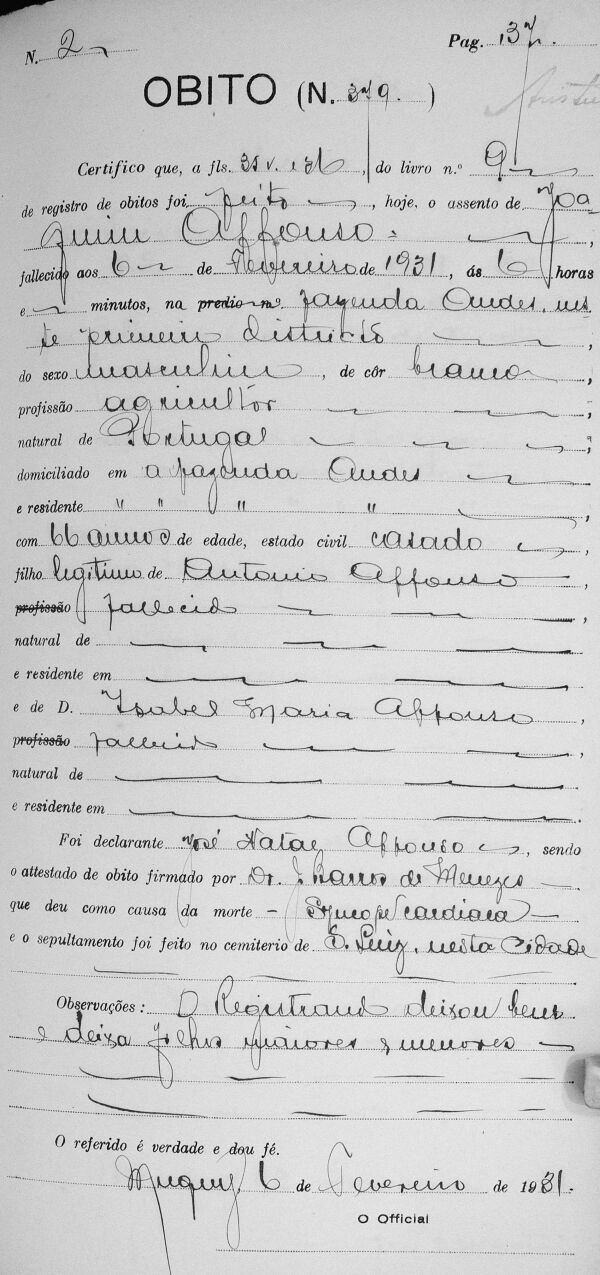 N. 2 Pag. 137.
OBITO (N. 379.)
Certifico que, a fls. 35 v. e 36, do livro n.º 9
de registro de obitos foi feito, hoje, o assento de Joa
quim Affonso.,
fallecido aos 6 de Fevereiro de 1931, ás 6 horas
e minutos, na predio n.º fazenda Andes, nes
te primeiro districto,
do sexo masculino, de côr branca,
profissão agricultôr,
natural de Portugal,
domiciliado em a fazenda Andes
e residente " " " ",
com 66 annos de edade, estado civil casado,
filho legitimo de Antonio Affonso,
profissão fallecido,
natural de
e residente em
e de D. Isabel Maria Affonso,
profissão fallecida,
natural de
e residente em
Foi declarante José Natal Affonso, sendo
o attestado de obito firmado por Dr. J. Barros de Menezes
que deu como causa da morte - Syncope cardiaca -
e o sepultamento foi feito no cemiterio de S. Luiz, nesta Cidade
Observações: O Registrando deixou bens
e deixa filhos maiores e menores
O referido é verdade e dou fé.
Muquy, 6 de Fevereiro de 1931.
O Official